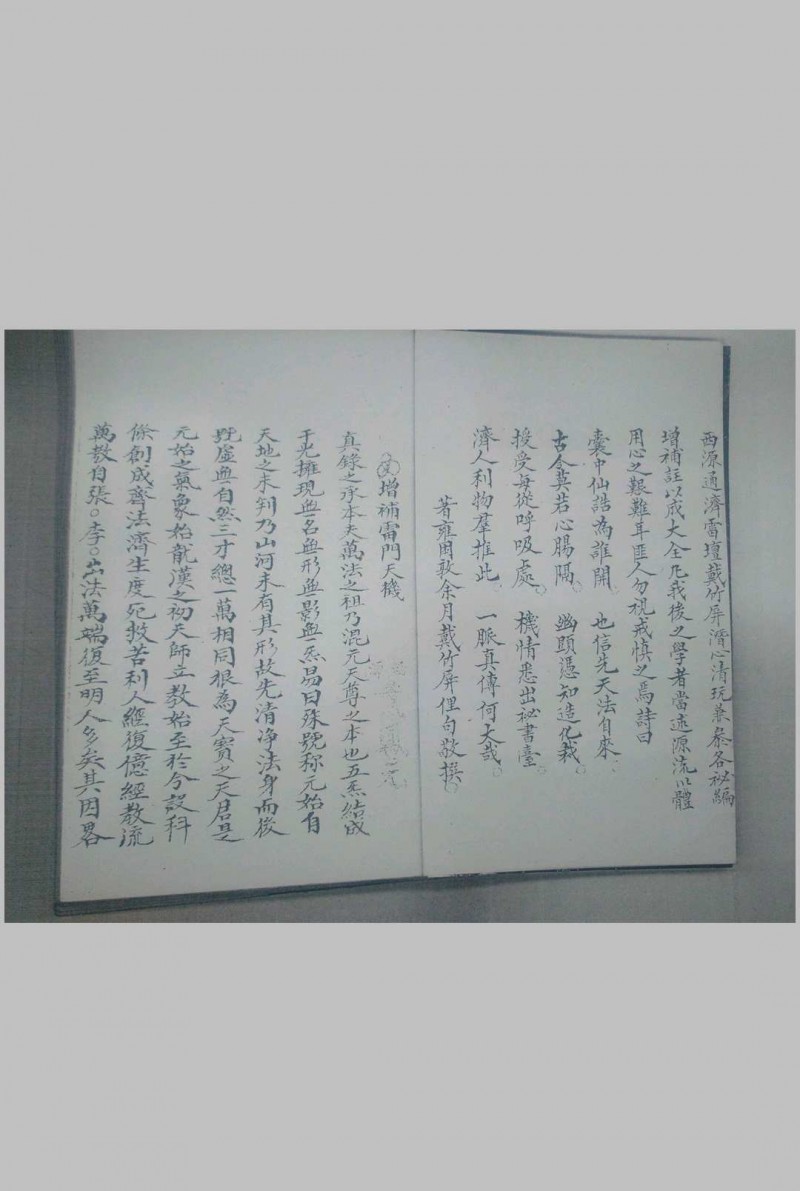 西源通濟雷壇戴竹屏潛心清玩兼叅各祕編
增補註以成大全凡我後之學者當述源流以體
用心之艱難耳匪人勿視戒慎之焉詩曰
囊中仙誥為誰開 也信先天法自來
古今莫若心腸隔 幽顕憑知造化栽
授受每從呼吸處 機情悉出祕書臺
濟人利物羣推此 一脈真傳何大哉
著雍困敦余月戴竹屏俚句敬撰
增補雷門天機
真錄之承本夫萬法之祖乃混元天尊之本也五炁結成
于光擁現無名無形無影無炁易曰殊號称元始自
天地之未判乃山河未有其形故先清净法身而後
虛無自然三才總一萬相同根為天寶之天君是
元始之氣象始龍漢之初天師立教始至於今設科
條創成齋法濟生度死救苦利人經復億經教流
萬教自張○李○出法萬端復至明人多矣其因畧